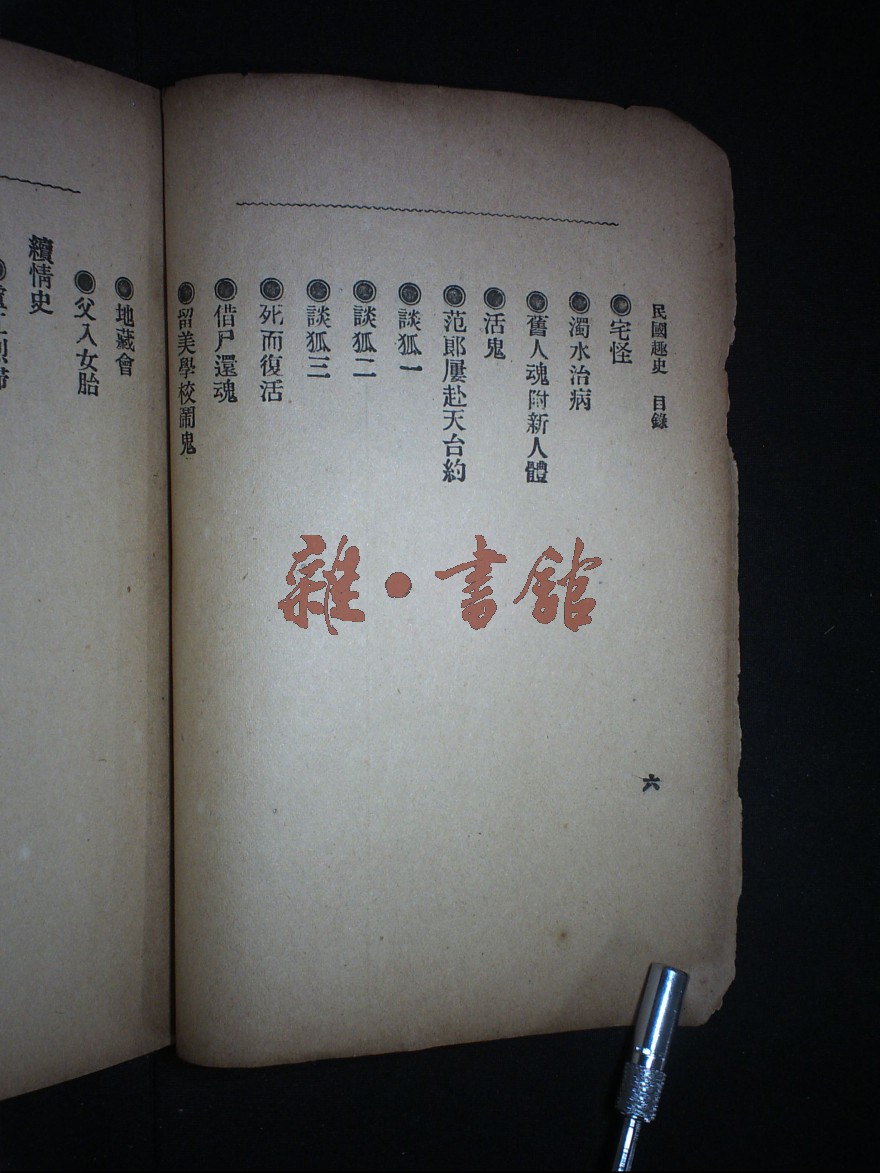 民國趣史　目錄
◉宅怪
◉濁水治病
◉舊人魂附新人體
◉活鬼
◉范郎屢赴天台約
◉談狐一
◉談狐二
◉談狐三
◉死而復活
◉借尸還魂
◉留美學校鬧鬼
六
◉地藏會
◉父入女胎
續情史
雜•書館